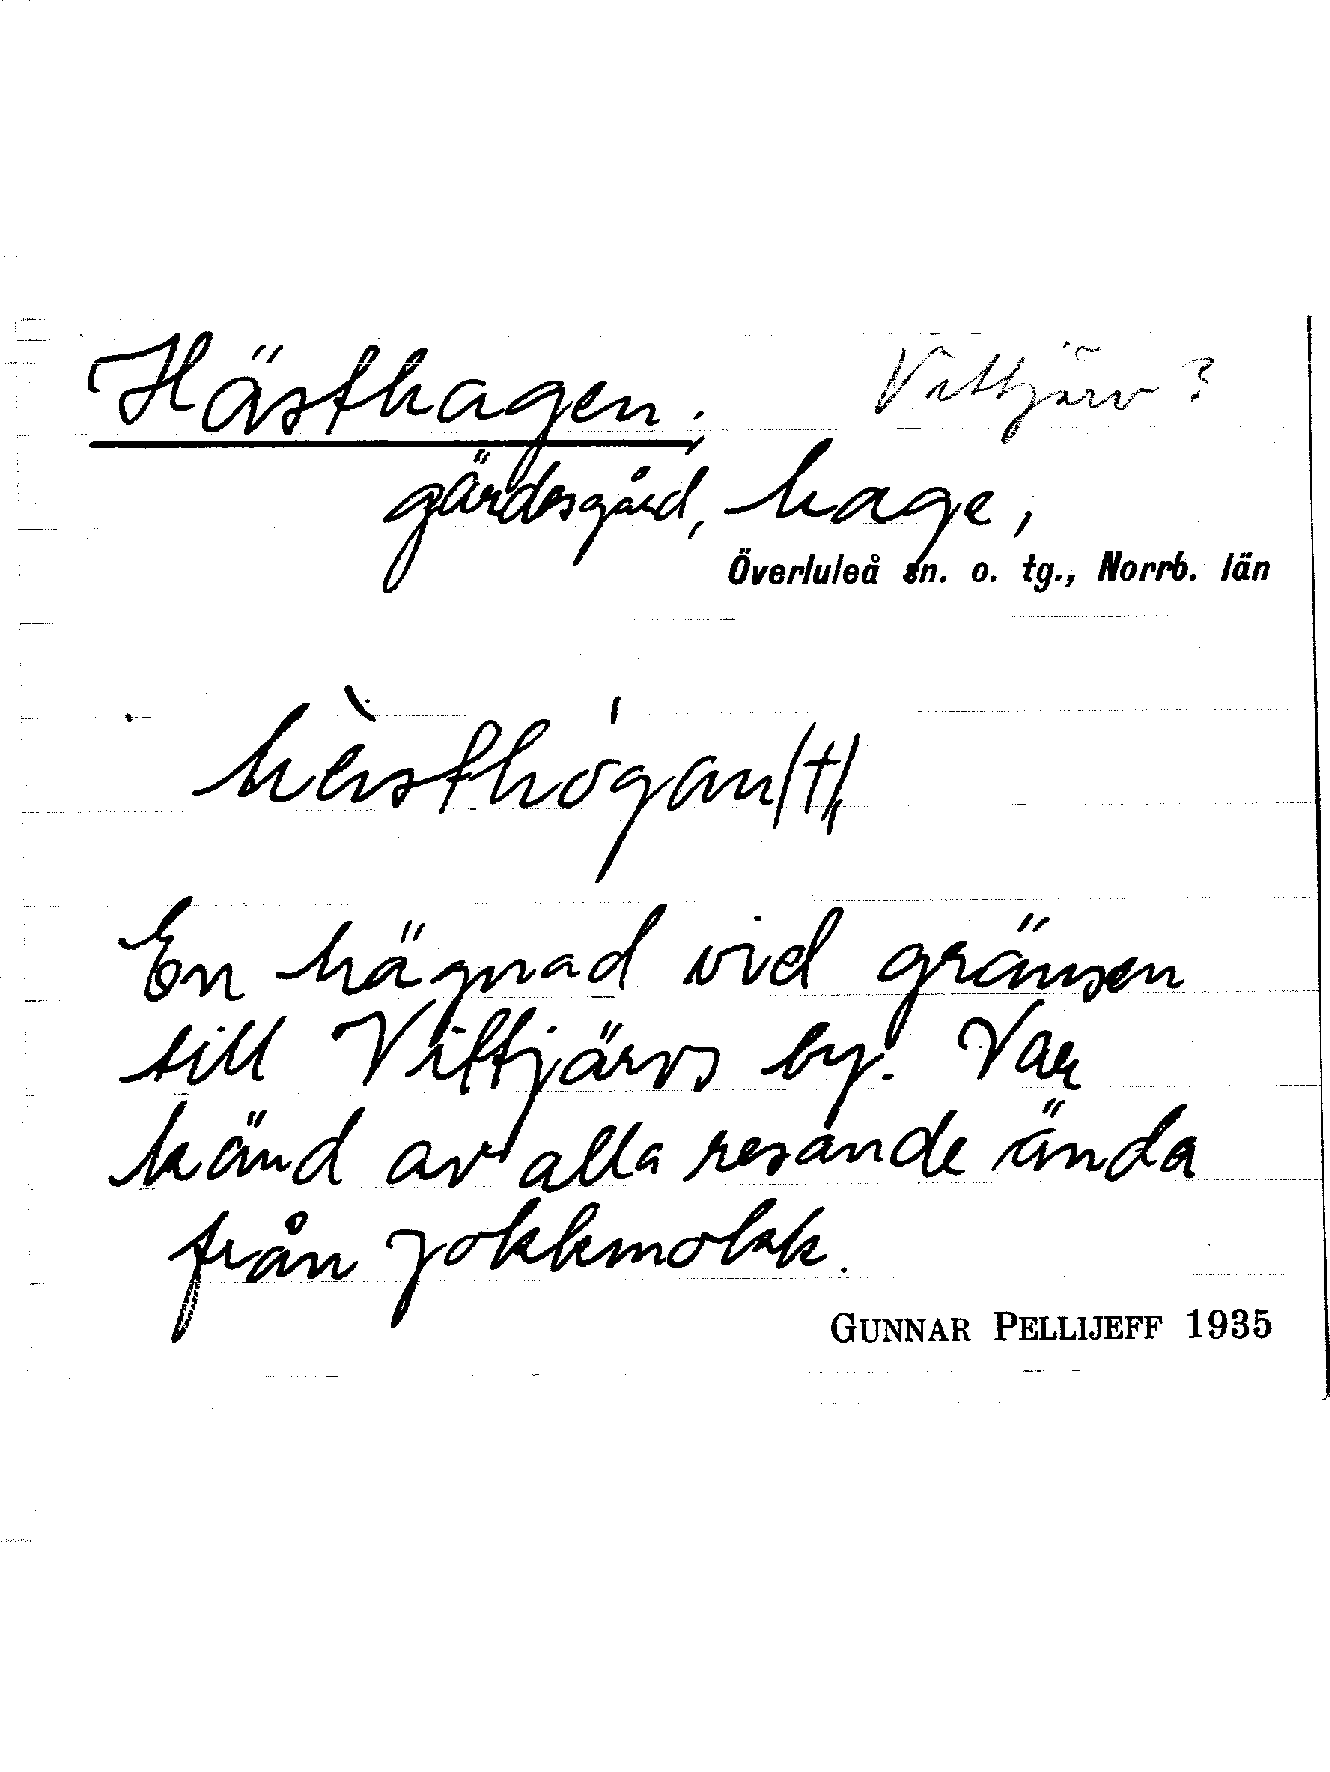 Hästhagen, Vittjärv?
gärdesgård, hage,
Överluleå sn. o. tg., Norrb. län
En hägnad vid gränsen
till Vittjärvs by. Var
känd av alla resande ända
från Jokkmokk.
GUNNAR PELLIJEFF 1935